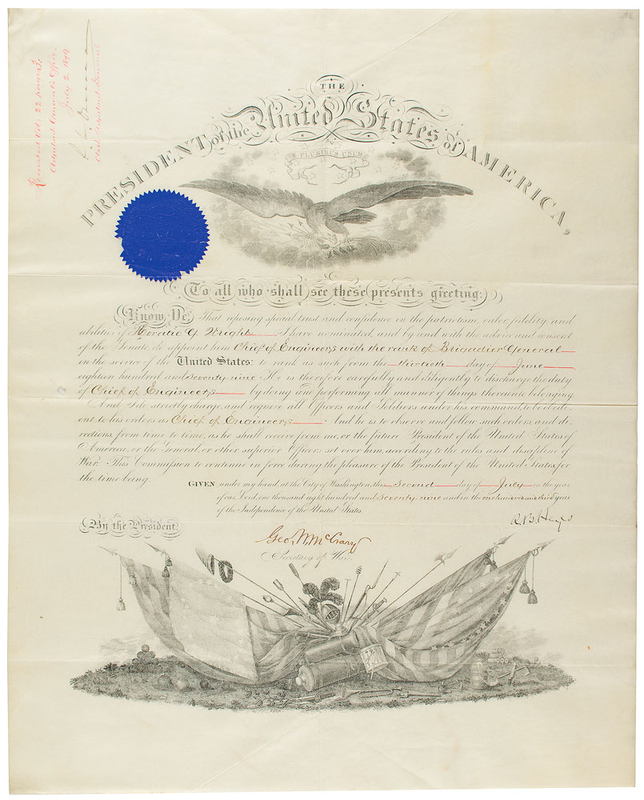 Recorded Vol. 22
Adjutant General's Office
July 2 1879
THE
PRESIDENT of the United States of AMERICA,
E PLURIBUS UNUM
To all who shall see these presents greeting:
Know Ye, That reposing special trust and confidence in the patriotism, valor, fidelity, and
abilities of Horatio G. Wright I have nominated, and by and with the advice and consent
of the Senate, do appoint him Chief of Engineers with the rank of Brigadier General
in the service of the United States: to rank as such from the thirtieth day of June
eighteen hundred and seventy nine He is therefore carefully and diligently to discharge the duty
of Chief of Engineers by doing and performing all manner of things thereunto belonging.
And I do strictly charge, and require all Officers and Soldiers under his command, to be obedi-
ent to his orders as Chief of Engineers And he is to observe and follow such orders and di-
rections, from time to time, as he shall receive from me, or the future President of the United States of
America, or the General or other superior Officers set over him, according to the rules and discipline of
War. This Commission to continue in force during the pleasure of the President of the United States, for
the time being.
GIVEN under my hand, at the City of Washington, this second day of July in the year
of our Lord one thousand eight hundred and seventy nine and in the year
of the Independence of the United States
By the President,
R.B. Hayes
Geo. W. McCrary
Secretary of War.